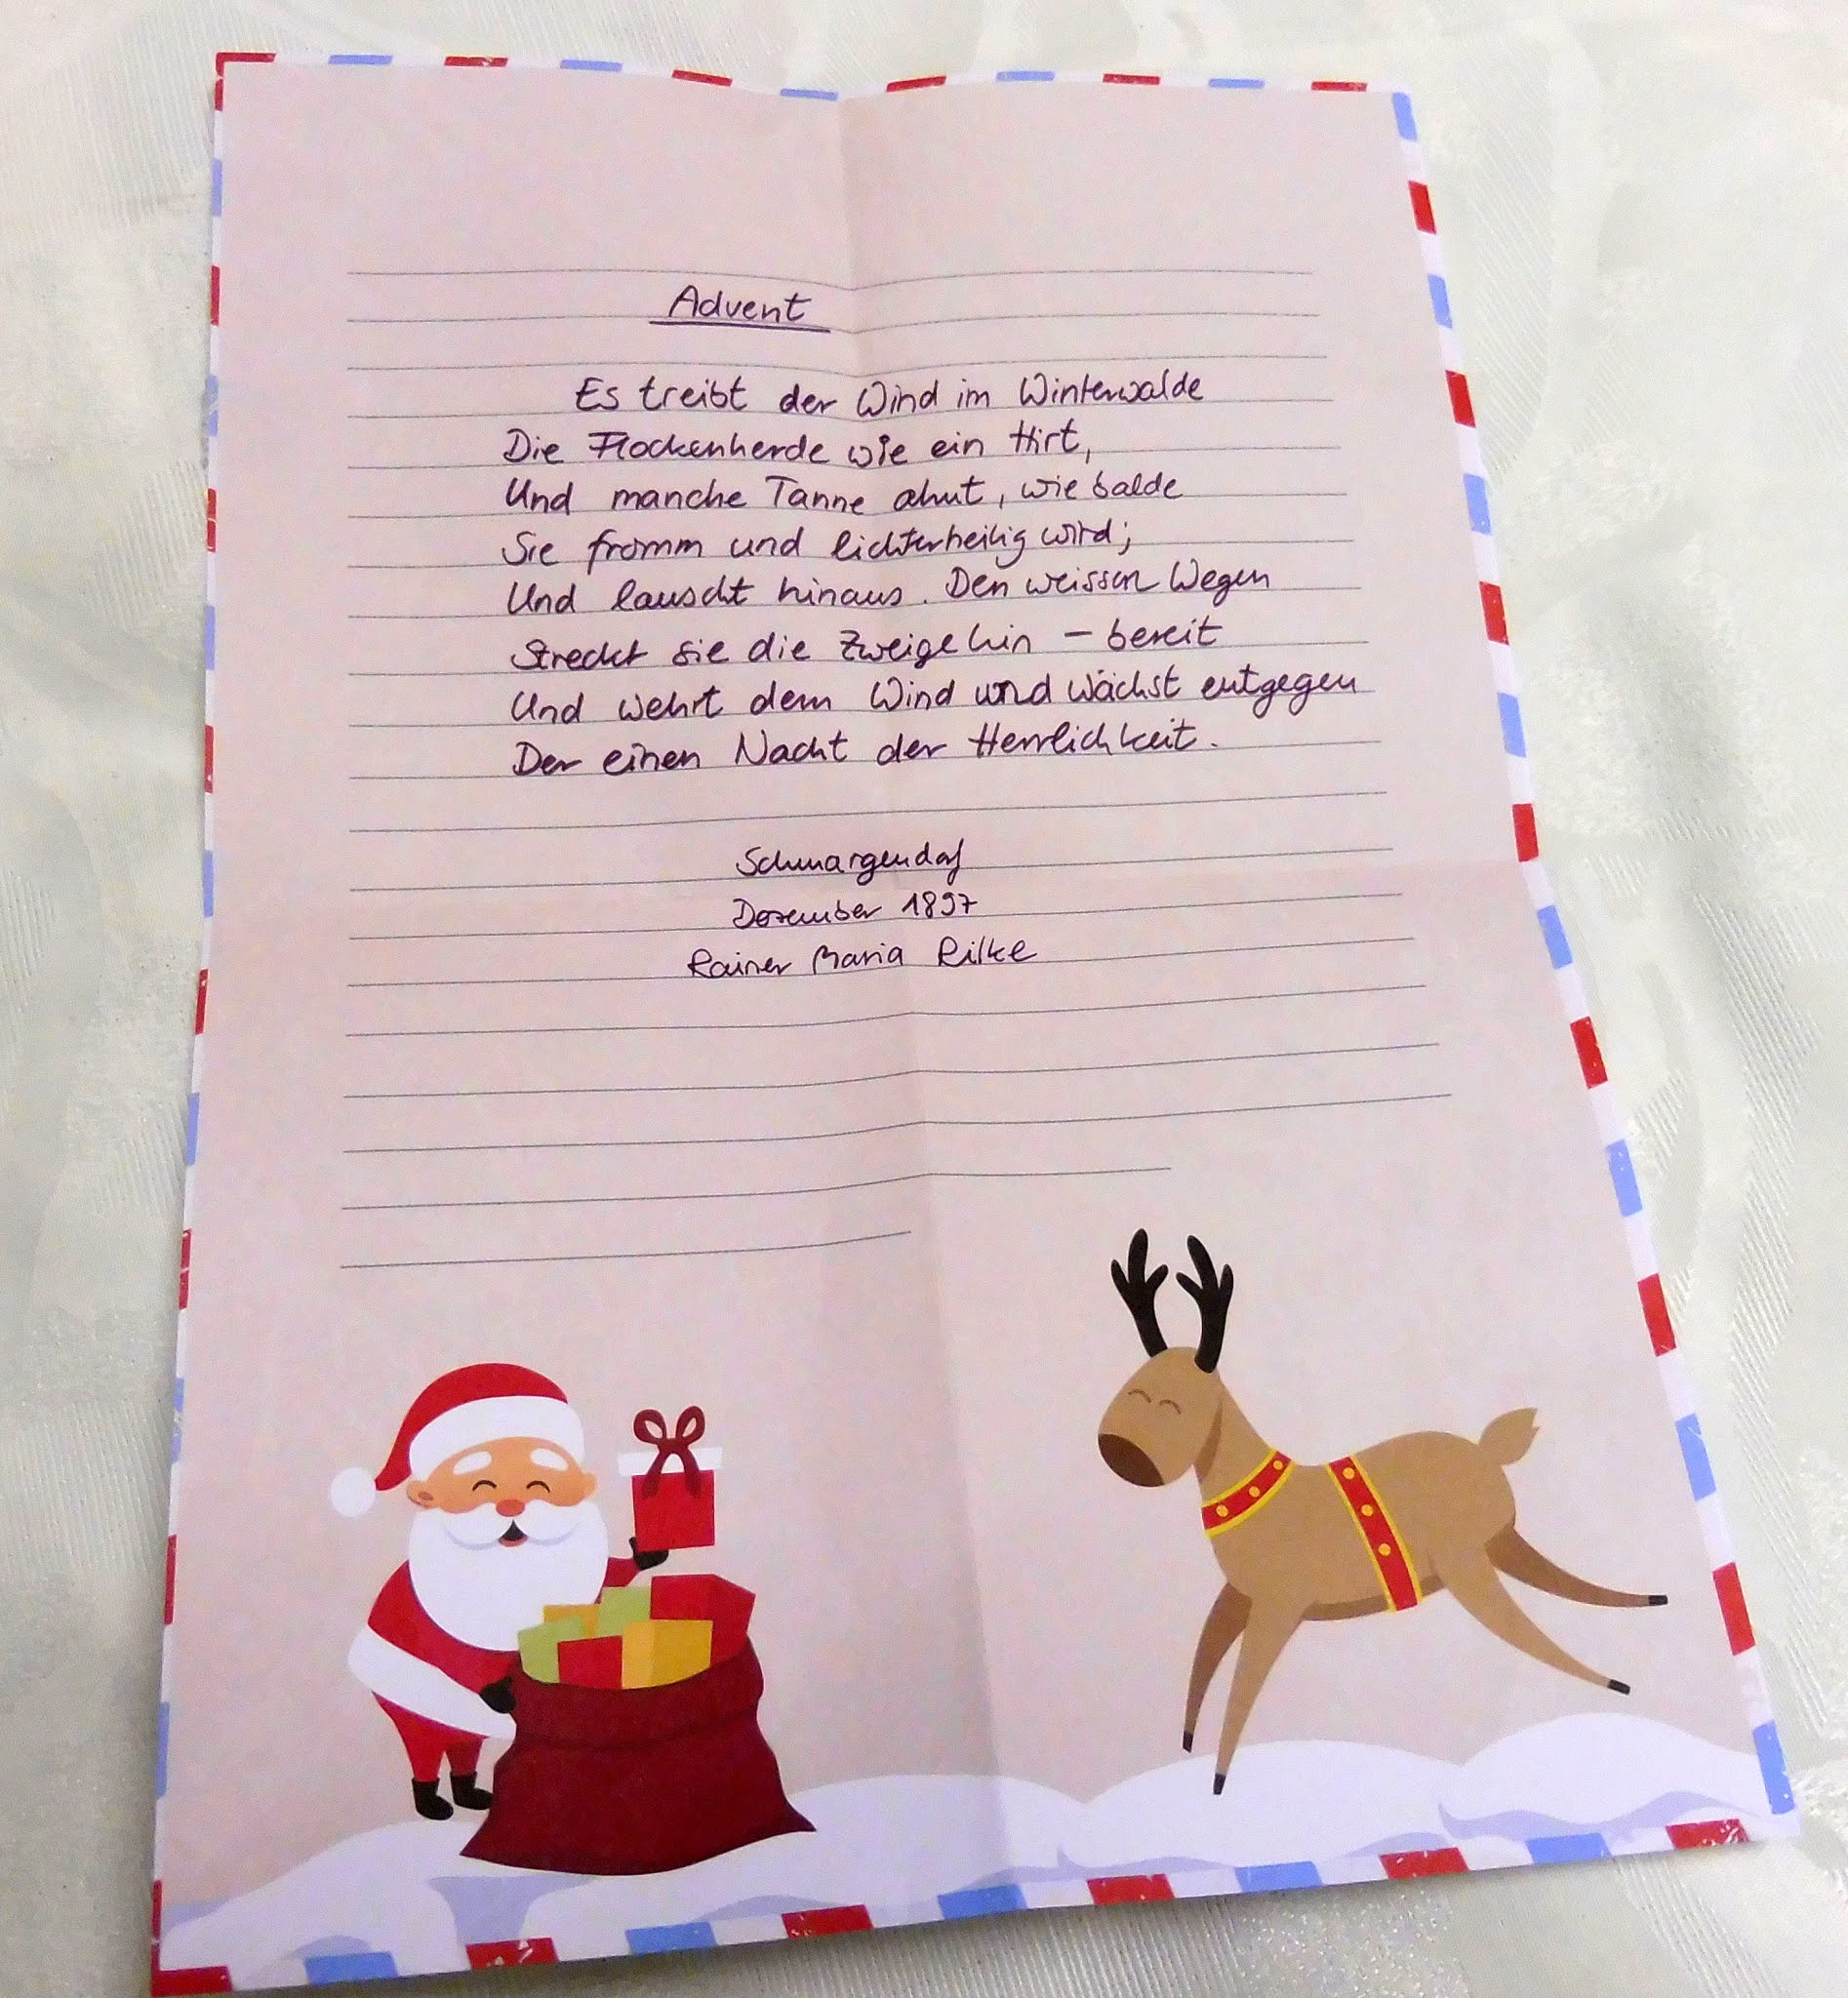 Advent
Es treibt der Wind im Winterwalde
Die Flockenherde wie ein Hirt,
Und manche Tanne ahnt, wie balde
Sie fromm und lichterheilig wird;
Und lauscht hinaus. Den weissen Wegen
Streckt sie die Zweige hin – bereit
Und wehrt dem Wind und wächst entgegen
Der einen Nacht der Herrlichkeit.
Schmargendorf
Dezember 1897
Rainer Maria Rilke